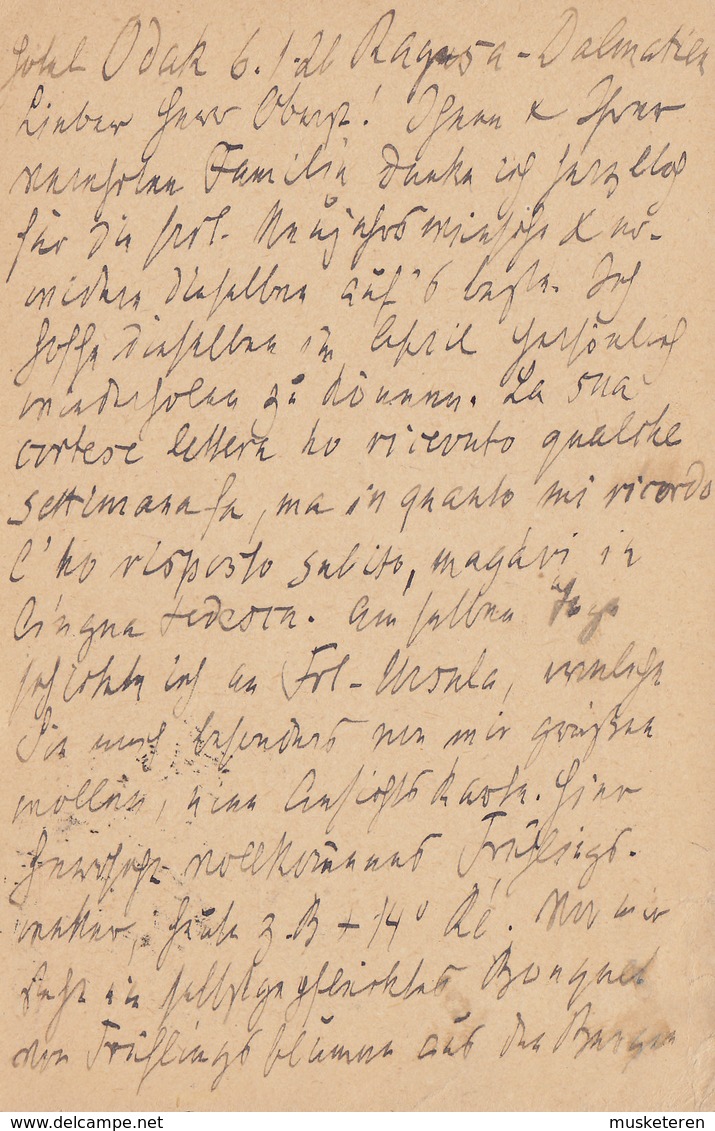 Hotel Odak 6.1.26 Ragusa-Dalmatien
Lieber Herr Oberst! Ihnen & Ihrer
verehrten Familie danke ich herzlich
für die frdl. Neujahrswünsche & er-
widere dieselben auf's beste. Ich
hoffe dieselben im April persönlich
wiederholen zu können. La sua
cortese lettera ho ricevuto qualche
settimana fa, ma in quanto mi ricordo
l'ho risposto subito, magari in
lingua tedesca. Am selben Tage
schickte ich an Frl. Ursula, welche
Sie auch besonders von mir grüßen
wollen, eine Ansichtskarte. Hier
herrscht vollkommenes Frühlings-
wetter, heute z.B + 14° Ré. Vor mir
steht ein selbstgepflücktes Bouquet
von Frühlingsblumen aus den Bergen
www.delcampe.net
musketeren